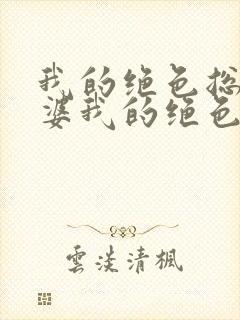 我的绝色总
婆我的绝色
雲淡清楓